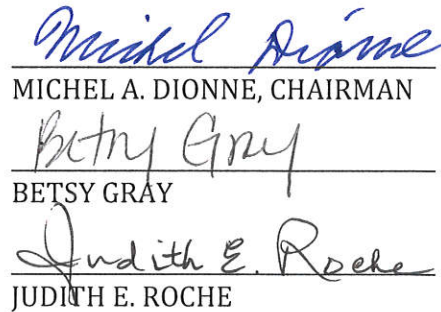 Michel Dionne
MICHEL A. DIONNE, CHAIRMAN
Betsy Gray
BETSY GRAY
Judith E. Roche
JUDITH E. ROCHE